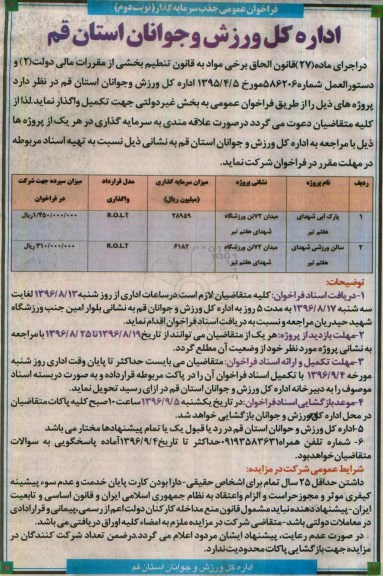 فراخوان عمومی جذب سرمایه گذار (نوبت دوم)
اداره کل ورزش و جوانان استان قم
دراجرای ماده(۲۷)قانون الحاق برخی مواد به قانون تنظیم بخشی از مقررات مالی دولت(۲) و
دستورالعمل شماره۵۸۶۲۰۶مورخ ۱۳۹۵/۴/۵ اداره کل ورزش وجوانان استان قم در نظر دارد
پروژه های ذیل را از طریق فراخوان عمومی به بخش غیردولتی جهت تکمیل واگذار نماید.لذا از
کلیه متقاضیان دعوت می گردد درصورت علاقه مندی به سرمایه گذاری در هر یک از پروژه ها
ذیل با مراجعه به اداره کل ورزش و جوانان استان قم به نشانی ذیل نسبت به تهیه اسناد مربوطه
در مهلت مقرر در فراخوان شرکت نماید.
ردیف نام پروژه نشانی پروژه میزان سرمایه گذاری (میلیون ریال) مدل قرارداد واگذاری میزان سپرده جهت شرکت در فراخوان
۱ پارک آبی شهدای هفتم تیر میدان ۷۲تن ورزشگاه شهدای هفتم تیر ۲۸۹۵۹ R.O.L.T ۱/۴۵۰/۰۰۰/۰۰۰ریال
۲ سالن ورزشی شهدای هفتم تیر میدان ۷۲تن ورزشگاه شهدای هفتم تیر ۶۱۸۲ R.O.L.T ۳۱۰/۰۰۰/۰۰۰ریال
توضیحات:
۱-دریافت اسناد فراخوان: کلیه متقاضیان لازم است درساعات اداری از روز شنبه ۱۳۹۶/۸/۱۳ لغایت
سه شنبه ۱۳۹۶/۸/۱۷ به مدت ۵ روز به اداره کل ورزش و جوانان قم به نشانی بلوار امین جنب ورزشگاه
شهید حیدریان مراجعه و نسبت به دریافت اسناد فراخوان اقدام نماید.
۲-مهلت بازدید از پروژه:هر یک از متقاضیان می توانند از تاریخ ۱۳۹۶/۸/۱۹تا ۱۳۹۶/۸/۲۵ با مراجعه
به نشانی پروژه مورد نظر خود از وضعیت آن مطلع گردد.
۳-مهلت تکمیل و ارائه اسناد فراخوان: متقاضیان می بایست حداکثر تا پایان وقت اداری روز شنبه
مورخه ۱۳۹۶/۹/۴ با تکمیل اسناد فراخوان آن را در پاکت مربوطه قرارداده و به صورت دربسته اسناد
موصوف را به دبیرخانه اداره کل ورزش و جوانان استان قم در ازای رسید تحویل نماید.
۴-موعد بازگشایی اسناد فراخوان:در تاریخ یکشنبه ۱۳۹۶/۹/۵ ساعت ۱۰صبح کلیه پاکات متقاضیان
در محل اداره کل ورزش و جوانان بازگشایی خواهد شد.
۵-اداره کل ورزش و جوانان استان قم در رد یا قبول یک یا تمام پیشنهادها مختار می باشد
۶- شماره تلفن همراه۰۹۱۹۳۵۸۳۶۳۱ حداکثر تا تاریخ ۱۳۹۶/۹/۴آماده پاسخگویی به سوالات
متقاضیان خواهد بود.
شرایط عمومی شرکت در مزایده:
داشتن حداقل ۲۵ سال تمام برای اشخاص حقیقی-دارا بودن کارت پایان خدمت و عدم سوء پیشینه
کیفری موثر و مجوز حراست و الزام واعتقاد به نظام جمهوری اسلامی ایران و قانون اساسی و تابعیت
ایران-پیشنهاد دهنده نباید مشمول قانون منع مداخله کارکنان دولت اعم از رسمی،پیمانی و قراردادی
در معاملات دولتی باشد-متقاضی شرکت در مزایده ملزم به امضاء کلیه اوراق دریافتی می باشد.
در صورت عدم رعایت، پیشنهاد ایشان مردود اعلام می گردد.درضمن تعداد شرکت کنندگان در
مزایده جهت بازگشایی پاکات محدودیت ندارد.
اداره کل ورزش و جوانان استان قم